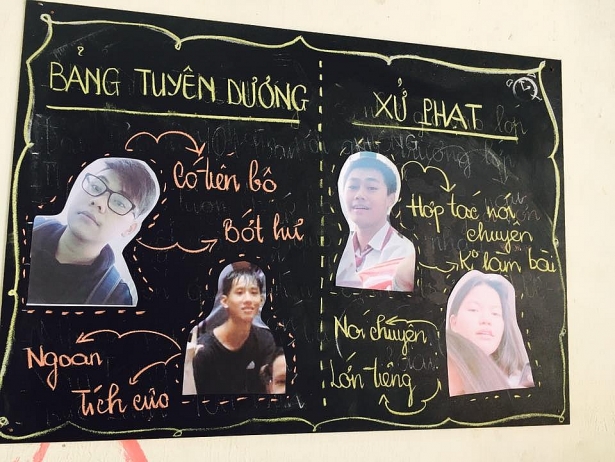 BẢNG TUYÊN DƯƠNG
Có tiến bộ
Bớt hư
Ngoan
Tích cực
XỬ PHẠT
Hợp tác nói
chuyện
K° làm bài
Nói chuyện
Lớn tiếng